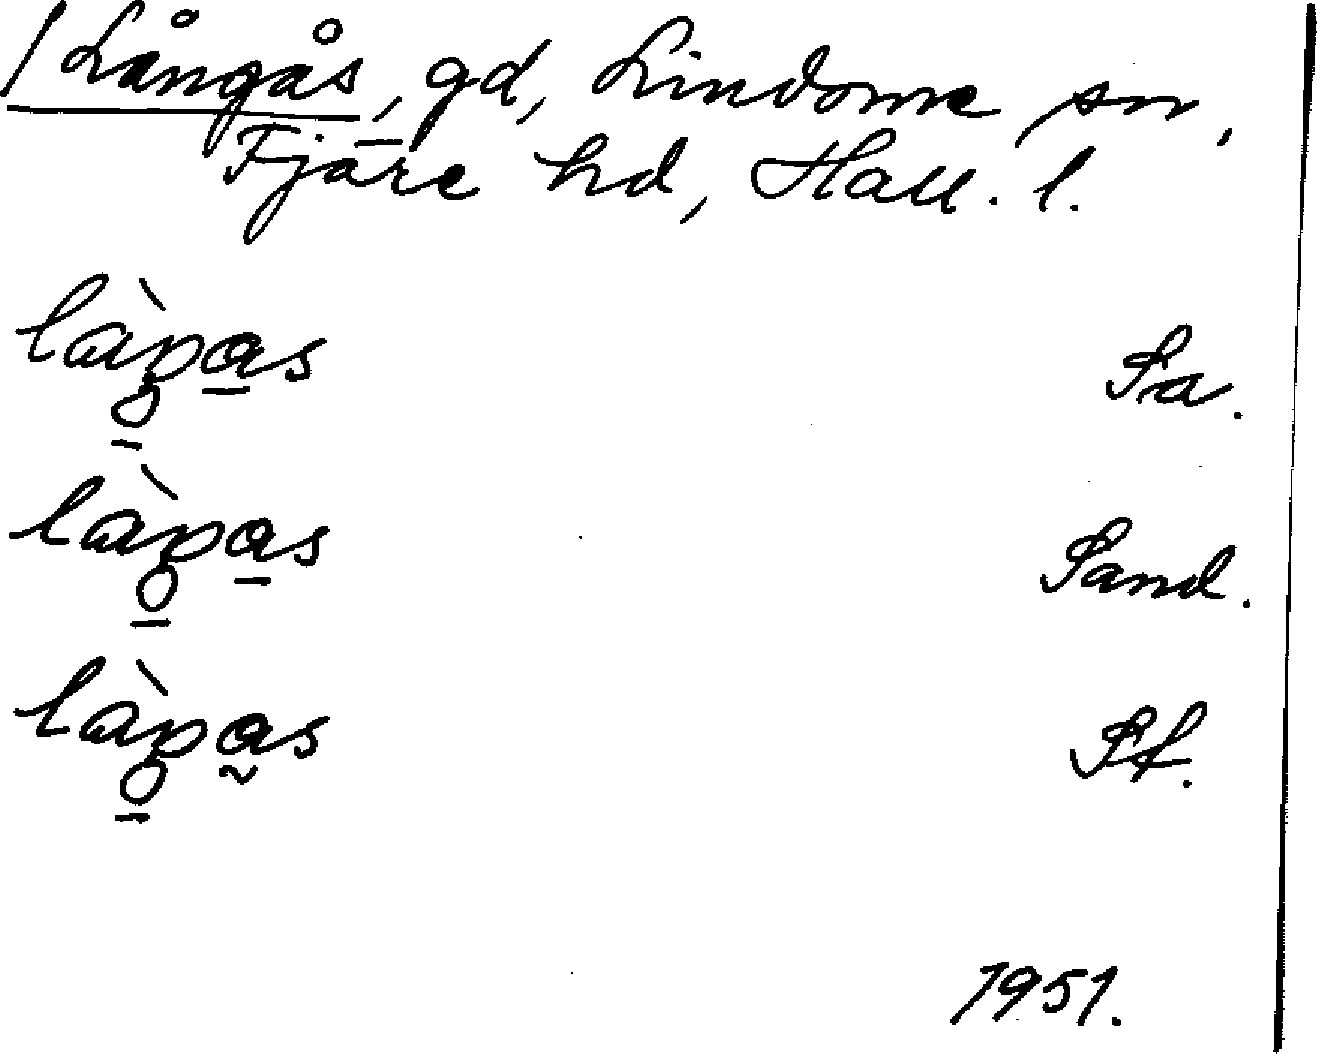 / Långås, gd, Lindome sn,
Fjäre hd, Hall. l.
làŋas Sa.
làŋas Sand.
làŋas Sf.
1951.